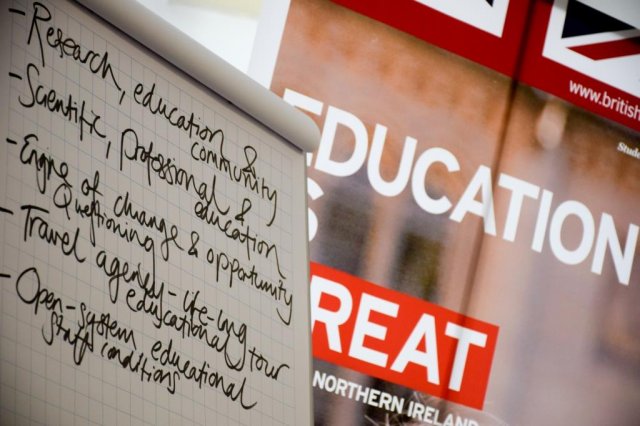 - Research, education &
community
- Scientific, professional &
education
- Engine of change & opportunity
Questioning
- Travel agency - life-long tour
educational
- Open-system educational
staff conditions
www.british
EDUCATION
S
REAT
NORTHERN IRELAND